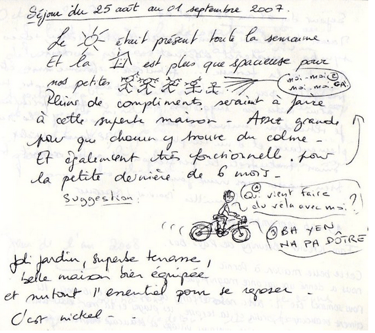 Séjour du 25 août au 01 septembre 2007.
Le était présent toute la semaine
Et la est plus que spacieuse pour
nos petites
moi. moi
moi. moi.
Pleins de compliments seraient à faire
à cette superbe maison - Assez grande
pour que chacun y trouve du calme -
Et également très fonctionnelle, pour
la petite dernière de 6 mois -
Suggestion
① Qui vient faire
du vélo avec moi?
③ BA YEN,
NA PA DOÎTRE
Joli jardin, superbe terrasse,
belle maison bien équipée
et surtout l'essentiel pour se reposer.
C'est nickel -